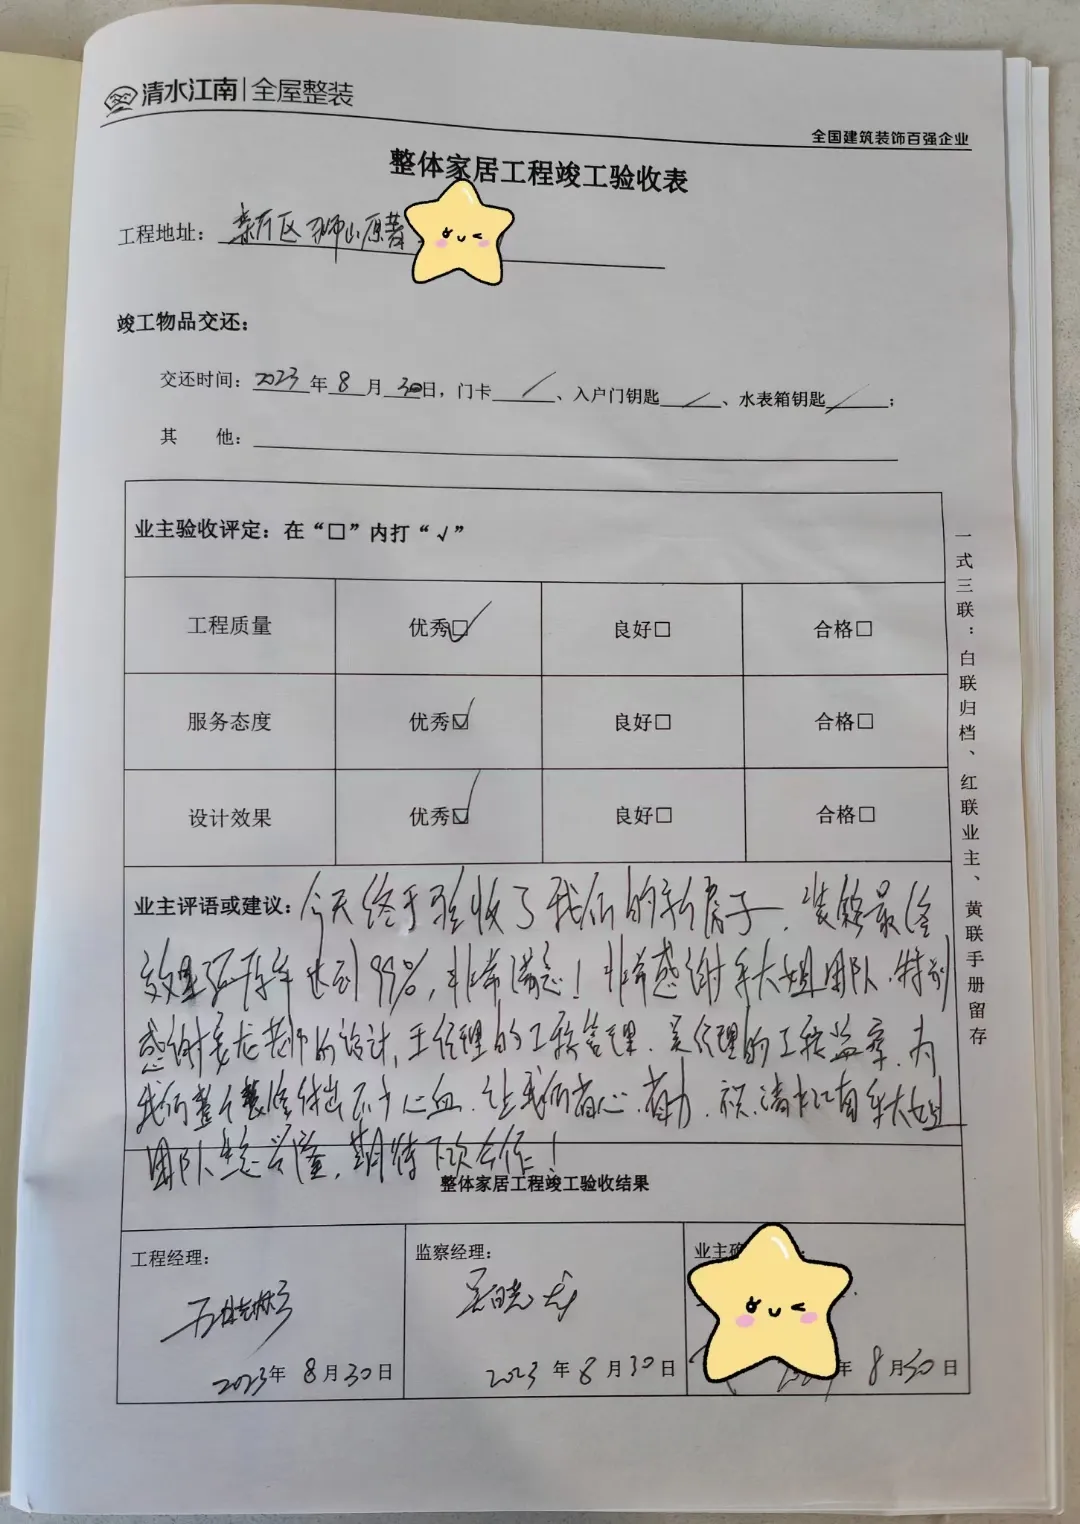 清水江南|全屋整装
全国建筑装饰百强企业
整体家居工程竣工验收表
工程地址: 新区狮山原著
竣工物品交还:
交还时间: 2023年8月30日, 门卡 / 、入户门钥匙 / 、水表箱钥匙 / ;
其 他:
业主验收评定: 在“□”内打“√”
工程质量 优秀☑ 良好□ 合格□
服务态度 优秀☑ 良好□ 合格□
设计效果 优秀☑ 良好□ 合格□
一式三联: 白联归档、红联业主、黄联手册留存
业主评语或建议: 今天终于验收了我们的新房子, 装修最终
效果还原率达到99%, 非常满意! 非常感谢车大姐团队, 特别
感谢姜龙老师的设计, 王经理的工程管理, 吴经理的工程监察, 为
我们整个装修付出不少心血, 让我们省心、省力, 祝清水江南车大姐
团队生意兴隆, 期待下次合作!
整体家居工程竣工验收结果
工程经理:
监察经理:
业主确
2023年8月30日
2023年8月30日
年8月30日